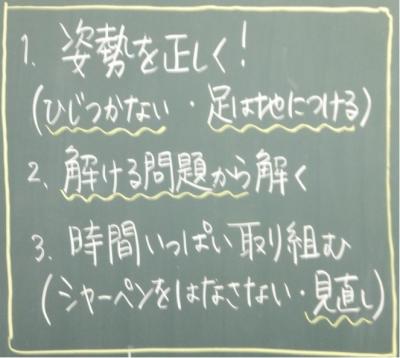 1. 姿勢を正しく!
(ひじつかない・足は地につける)
2. 解ける問題から解く
3. 時間いっぱい取り組む
(シャーペンをはなさない・見直し)